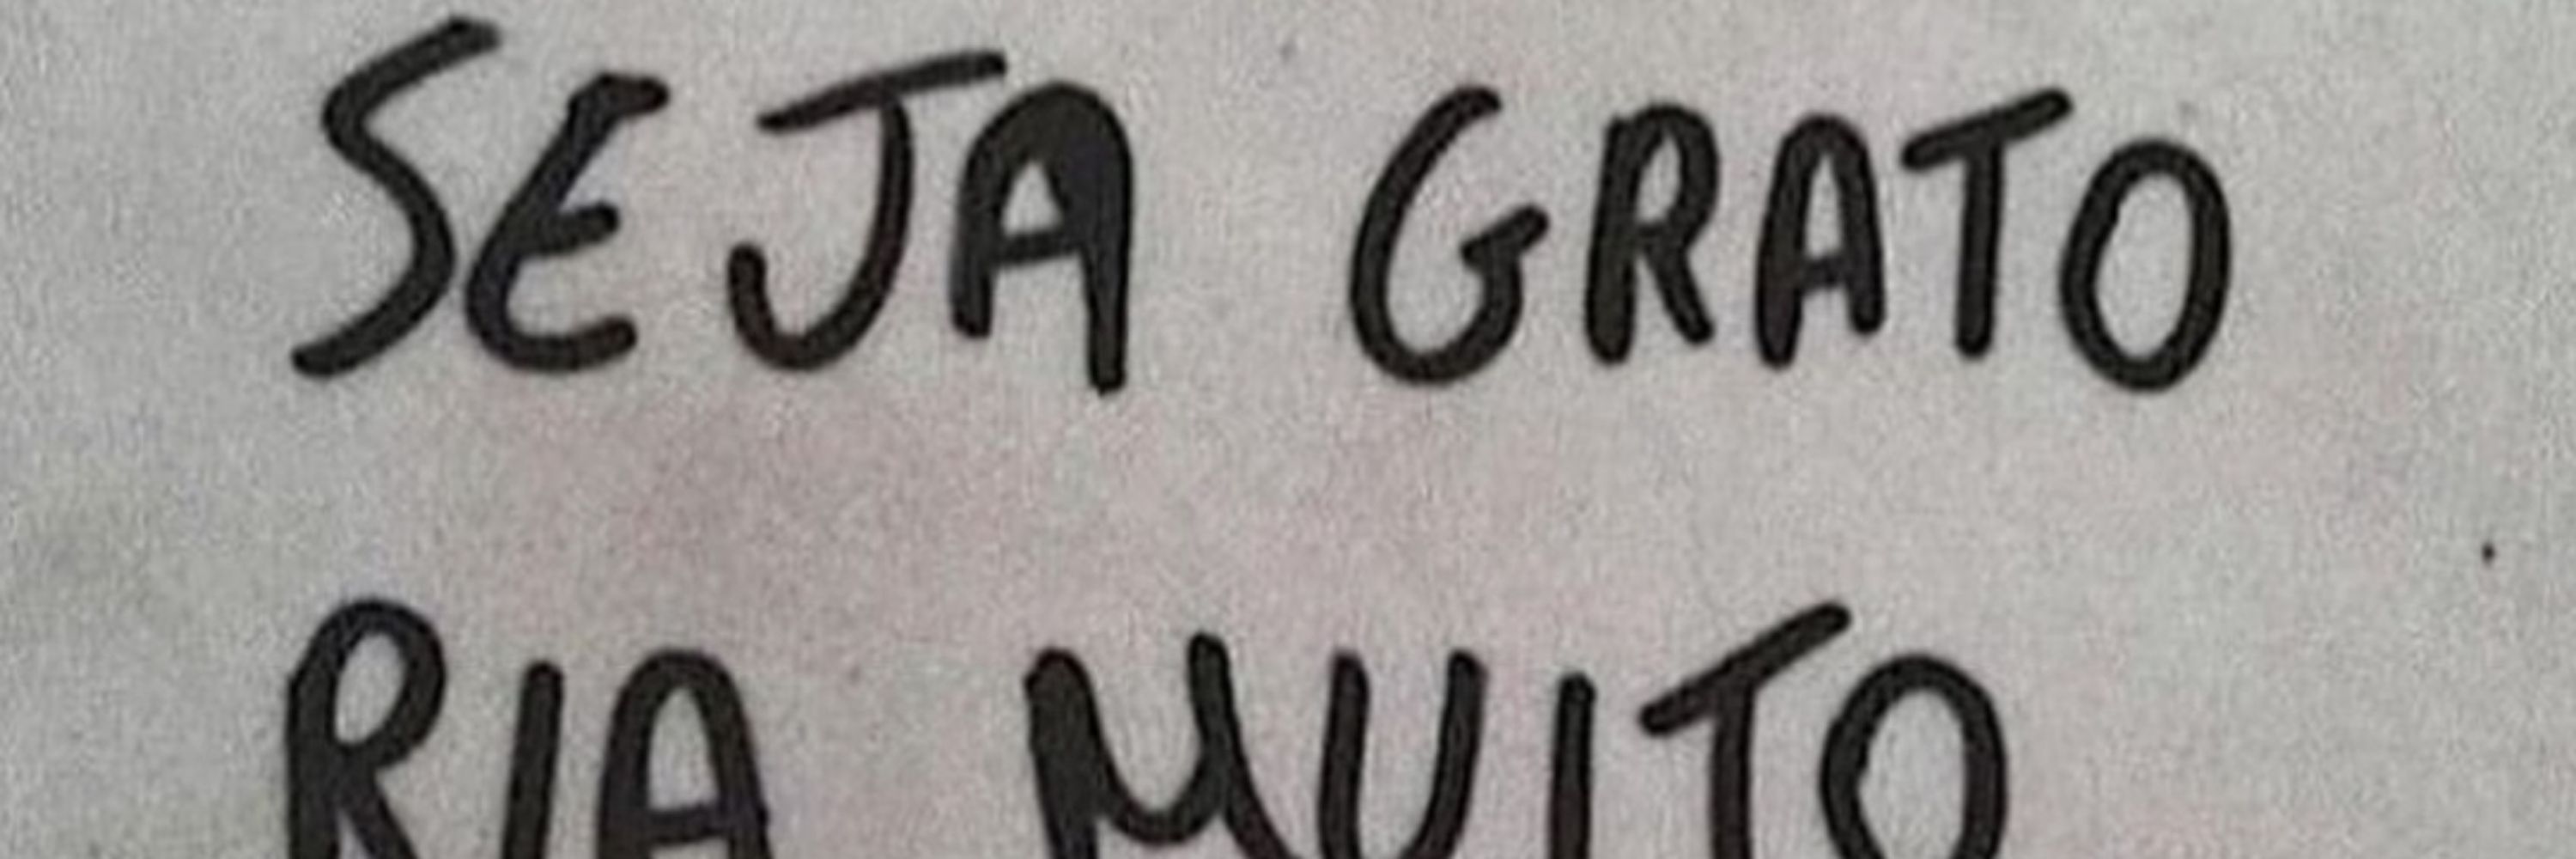 SEJA GRATO
RIA MUITO